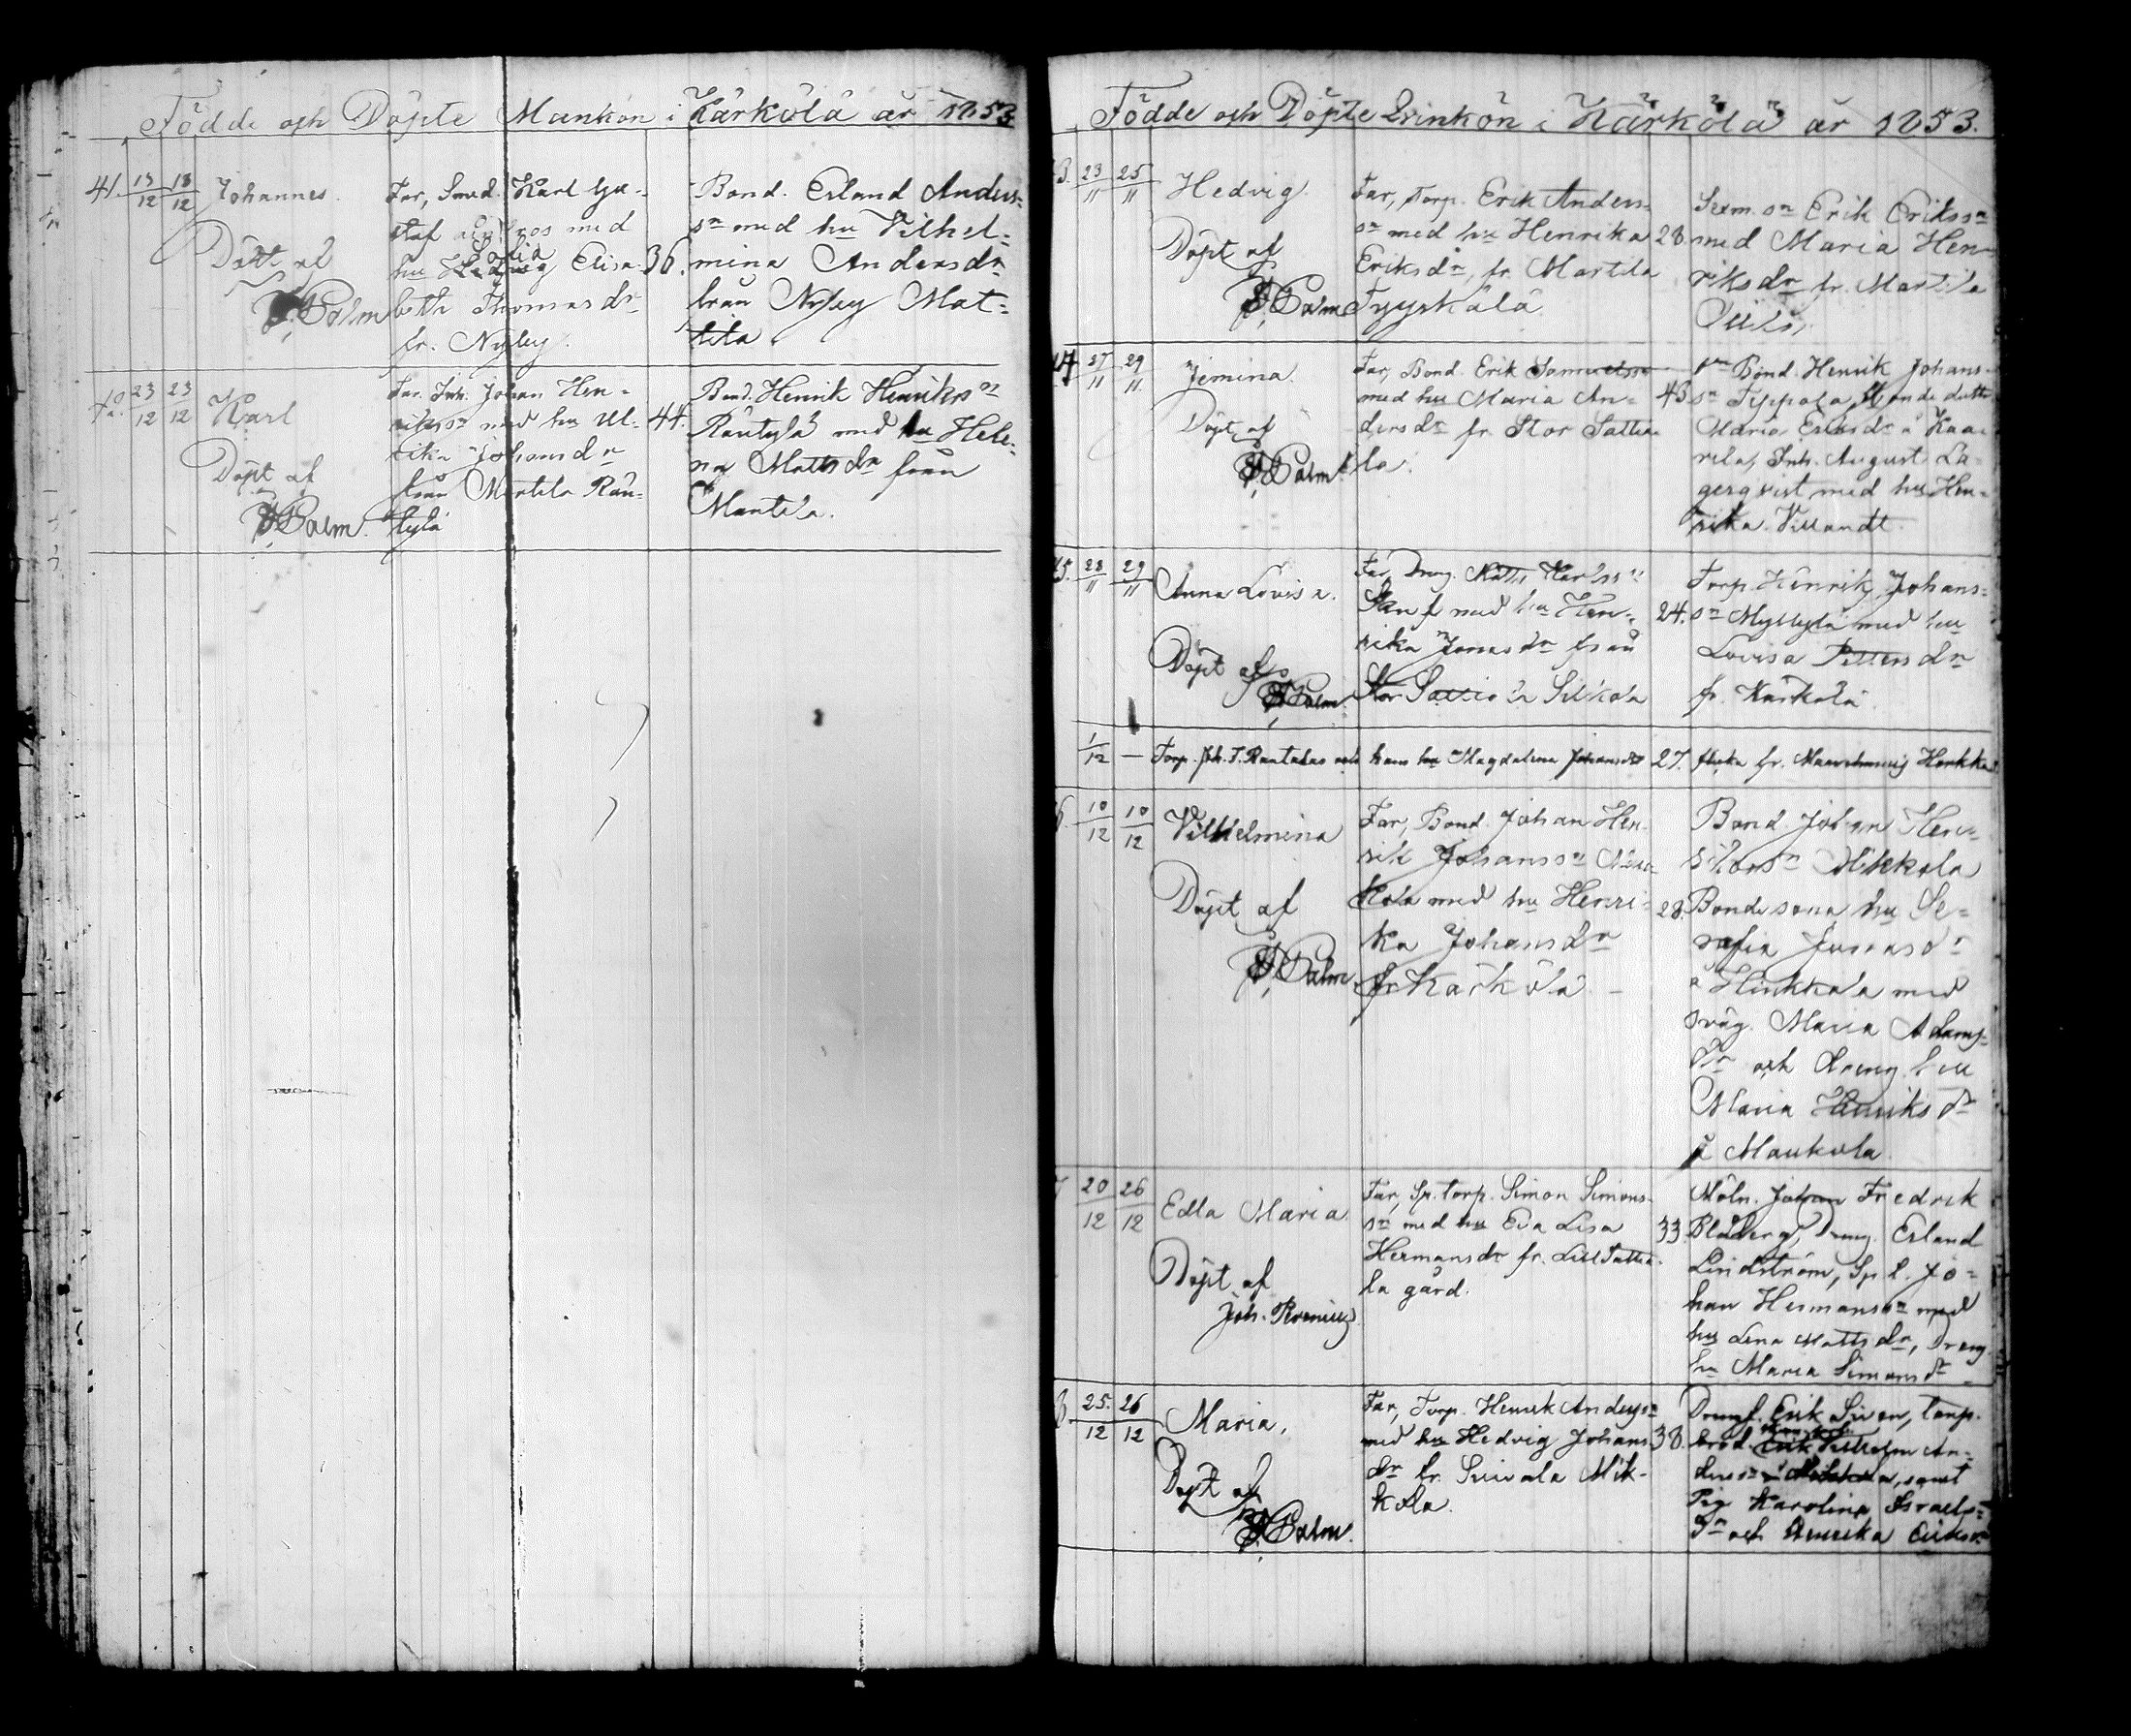 Födde och Döpte Mankön i Kärkölä år 1853
41. 13/12 18/12 Johannes.
Döpt af
Palm
Far, Smed. Karl Gu-
staf med
hu Elisa-
beth Thomasdr
fr. Nyby.
36.
Bond. Erland Anders=
sn med hu Vilhel=
mina Andersdr
från Nyby Mat=
tila.
23/12 23/12 Karl
Döpt af
Palm.
Far. Inh. Johan Hen-
rikssn med hu Ul-
rika Johansdr
från Martila Räu-
tylä
44.
Bond. Henrik Henrikssn
Räutylä med hu Hele-
na Mattsdr från
Martila.
Födde och Döpte Qvinkön i Kärkölä år 1853.
3. 23/11 25/11 Hedvig.
Döpt af
Palm
Far, Torp. Erik Anders-
sn med hu Henrika
Eriksdr, fr. Martila
Tyyskälä
28.
Sexm. sn Erik Erikssn
med Maria Hen-
riksdr fr. Martila
27/11 29/11 Jemina.
Döpt af
Palm
Far, Bond. Erik Samuelssn
med hu Maria An-
dersdr fr. Stor Sattia-
la.
43.
Bond. Henrik Johans-
sn Tippola, Bondedottr
Maria Eriksdr å Kaa-
rela, Inh. August La-
gerqvist med hu Hen-
rika Villandt.
5. 28/11 29/11 Anna Lovisa.
Döpt af
Palm
Far, Dreng. Matts Karlssn
med hu Hen-
rika Jonasdr från
Stor Sattiala Sillkola
24.
Torp. Henrik Johans=
sn Myllylä med hu
Lovisa Pettersdr
fr. Kärkölä.
1/12 — Torp. Joh. J. Rautalas och hans hu Magdalena Johansdr 27. flicka fr. Harkka
10/12 10/12 Vilhelmina
Döpt af
Palm
Far, Bond. Johan Hen-
rik Johanssn
kola med hu Henri-
ka Johansdr
fr Kärkölä. —
28.
Bond Johan Hen-
rikssn Mikkola
Bondesona hu Se=
rafia Jonasdr
å Hinkkala med
svåg. Maria Adams-
dr och dreng. hu
Maria Henriksdr
å Maukola
20/12 26/12 Edla Maria.
Döpt af
Joh.
Far, Sp. torp. Simon Simons-
sn med hu Eva Lisa
Hermansdr fr. Lill Sattia-
la gård.
33.
Möln. Johan Fredrik
Blåberg, Dreng. Erland
Lindström, Sp t. Jo=
han Hermanssn med
hu Lena Mattsdr, Dreng.
hu Maria Simonsdr
8. 25/12 26/12 Maria.
Döpt af
Palm.
Far, Torp. Henrik Anderssn
med hu Hedvig Johans-
dr fr. Mik-
kola.
38.
Drengs. Erik torp.
brod. Vilhelm An-
derssn samt
Pig Karolina Israels=
dr och Erikssn